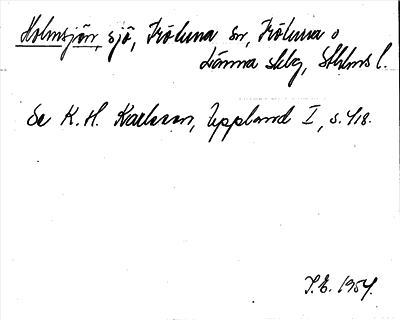 Holmsjön, sjö, Fröluna sn, Fröluna o
Länna sklg, Sthlms l.
Se K. H. Karlsson, Uppland I, s. 418.
S.E. 1954.